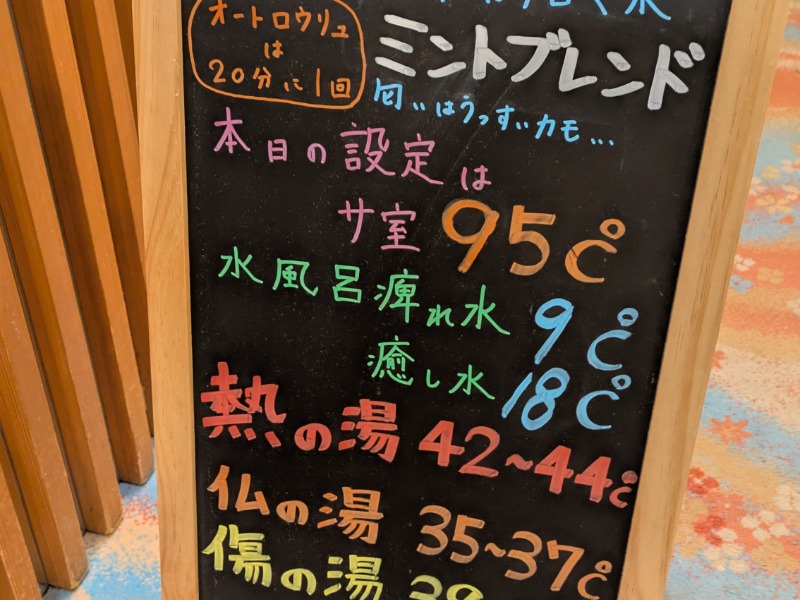 オートロウリュ
は
20分に1回
ミントブレンド
匂いはうっすぃカモ...
本日の設定は
サ室 95℃
水風呂痺れ水 9℃
癒し水 18℃
熱の湯 42~44℃
仏の湯 35~37℃
傷の湯